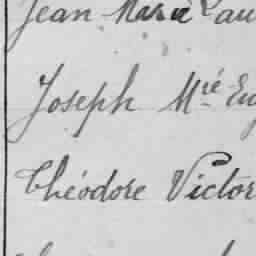 Jean Marie
Joseph Mré
Théodore Victor